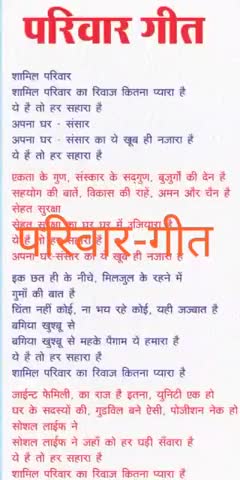 परिवार गीत
शामिल परिवार
शामिल परिवार का रिवाज कितना प्यारा है
ये है तो हर सहारा है
अपना घर - संसार
अपना घर - संसार का ये खूब ही नजारा है
ये है तो हर सहारा है
एकता के गुण, संस्कार के सद्गुण, बुजुर्गो की देन है
सहयोग की बातें, विकास की राहें, अमन और चैन है
सेहत सुरक्षा
सेहत सुरक्षा का घर घर में उजियारा है
परिवार-गीत
ये है तो हर सहारा है
अपना घर-संसार का ये खूब ही नजारा है
इक छत ही के नीचे, मिलजुल के रहने में
गुमों की बात है
चिंता नहीं कोई, ना भय रहे कोई, यही जज्बात है
बगिया खुश्बू से
बगिया खुश्बू से महके पैगाम ये हमारा है
ये है तो हर सहारा है
शामिल परिवार का रिवाज कितना प्यारा है
जाईन्ट फेमिली, का राज है इतना, युनिटी एक हो
घर के सदस्यों की, गुडविल बने ऐसी, पोजीशन नेक हो
सोशल लाईफ ने
सोशल लाईफ ने जहाँ को हर घड़ी सँवारा है
ये है तो हर सहारा है
शामिल परिवार का रिवाज कितना प्यारा है